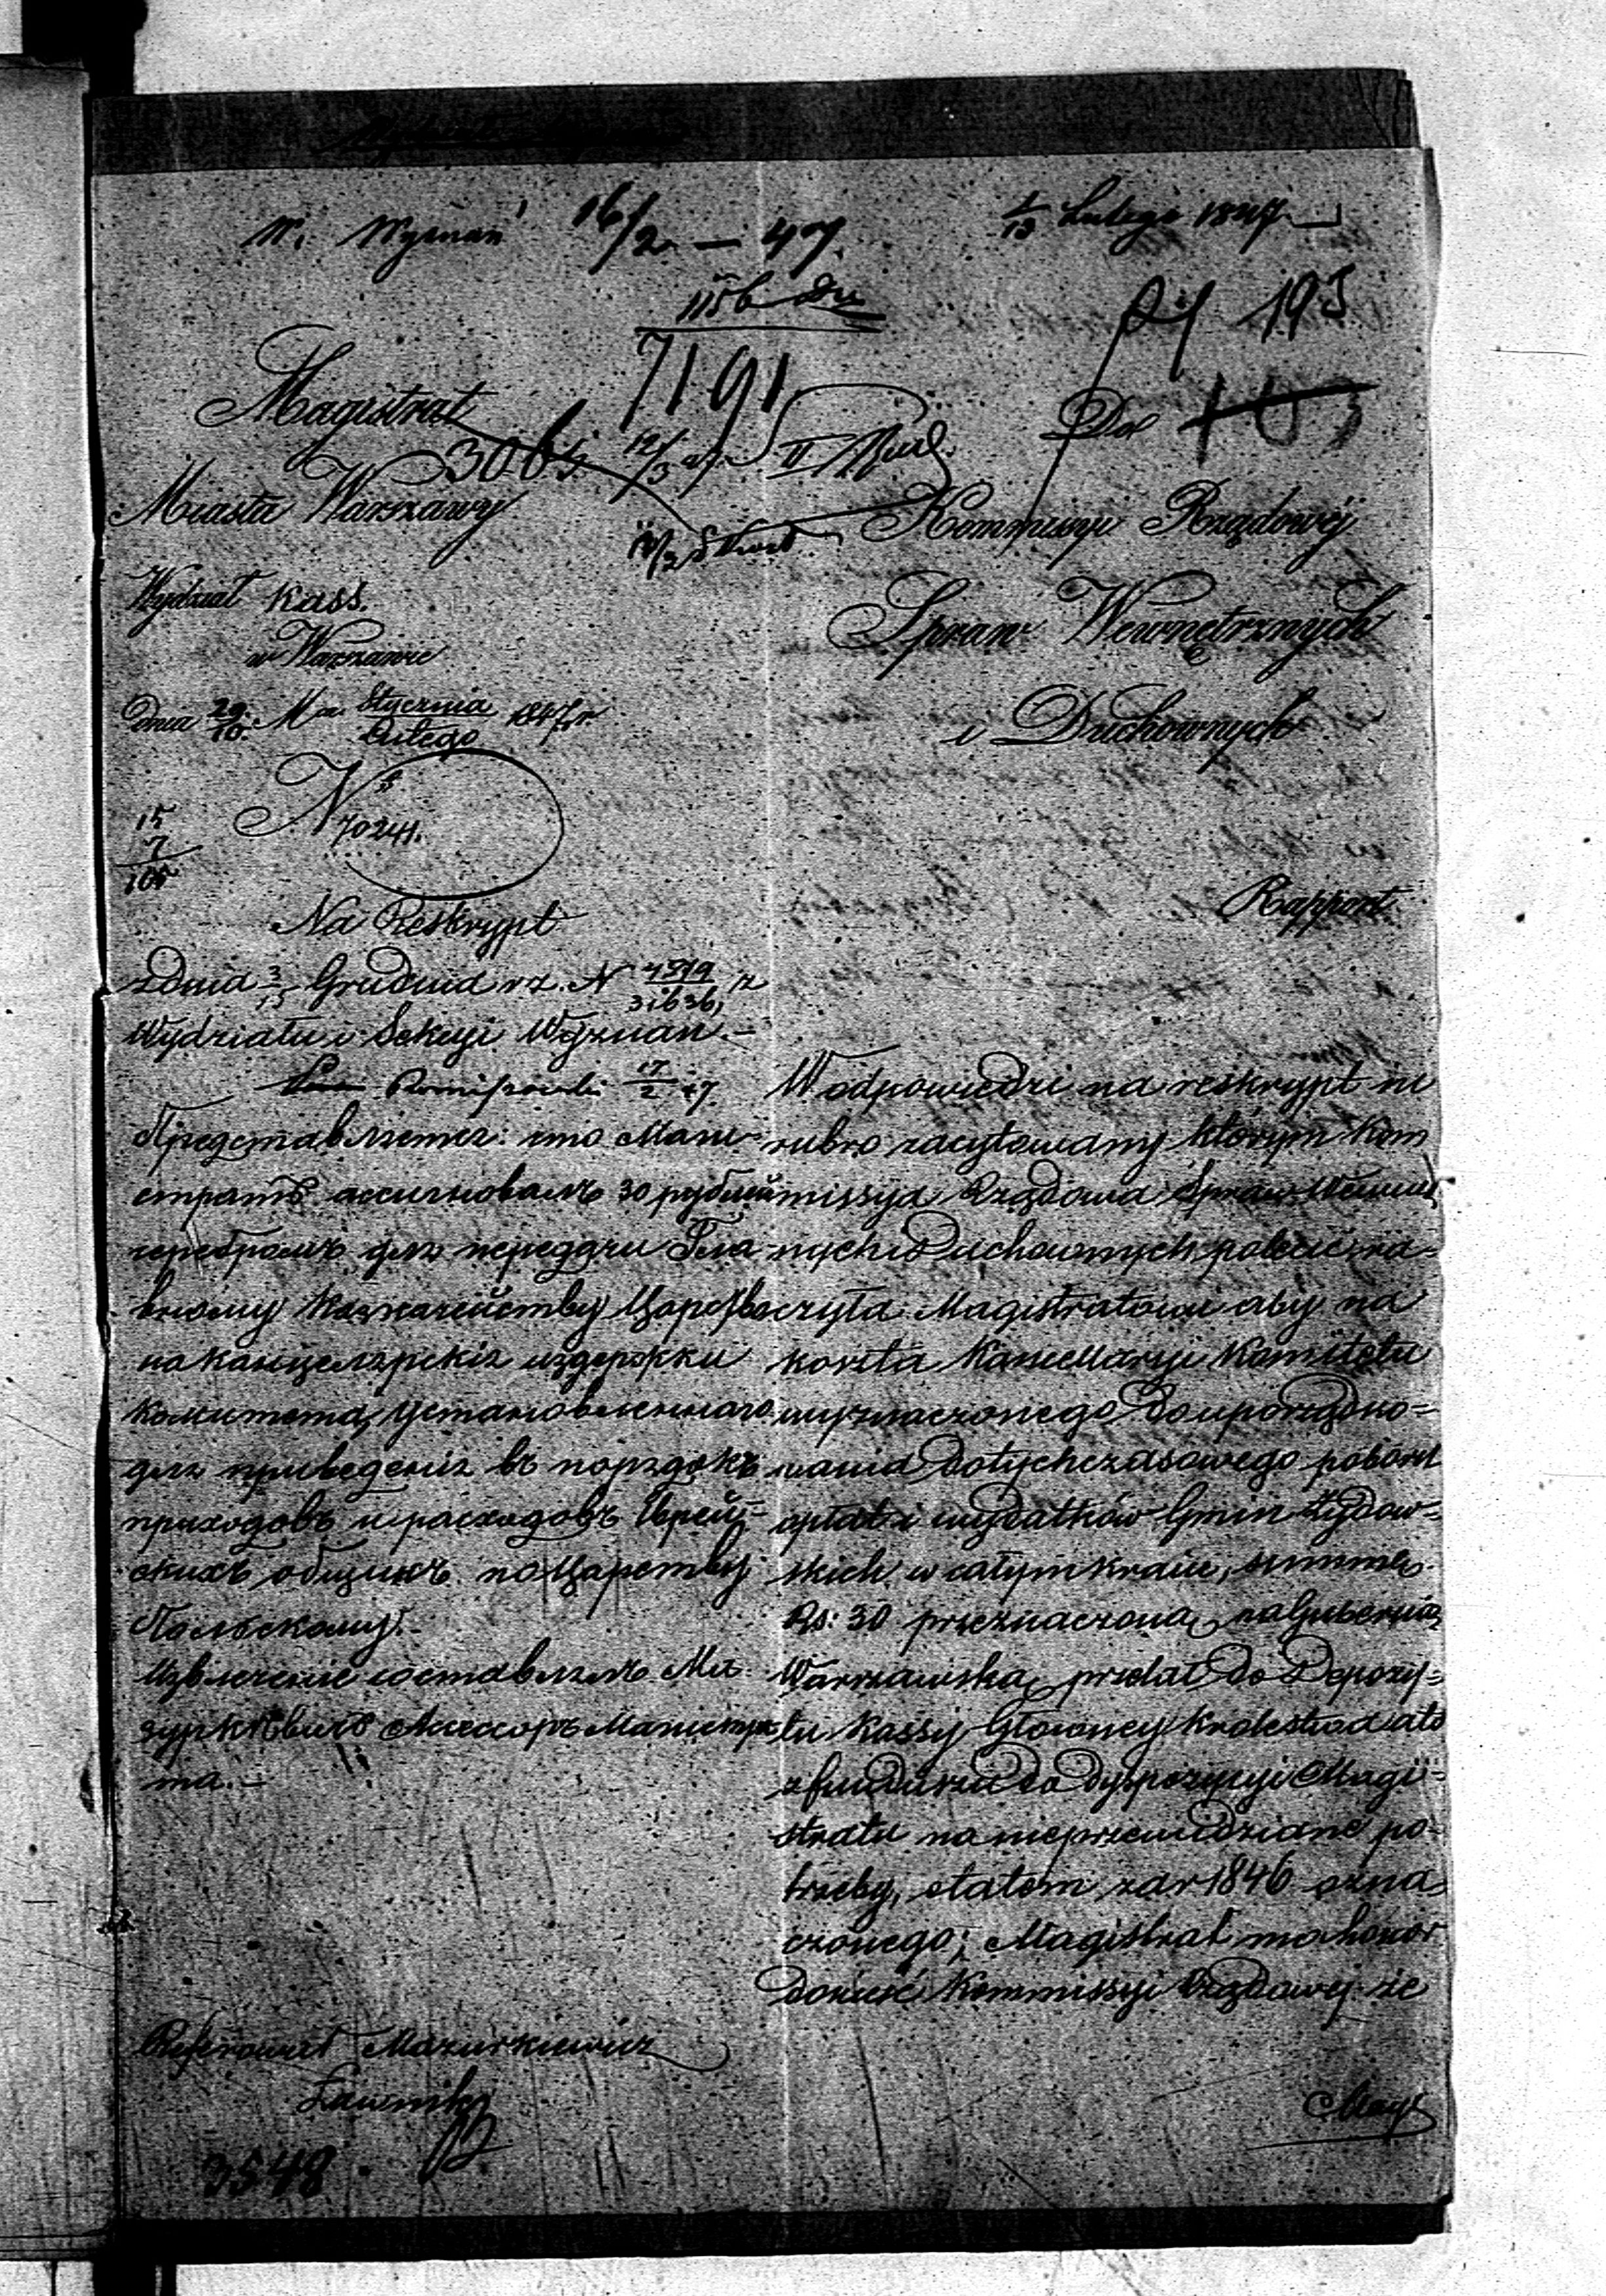 W. Wyznań 16/2 — 47.
1/13 Lutego 1847
1156
7191
193
Magistrat
Do
3065 12/3 47 II
Miasta Warszawy
Kommissyi Rządowéj
Wydział Kass.
Spraw Wewnętrznych
w Warszawie
Dnia 29/10 Ma Stycznia/Lutego 1847 r.
i Duchownych
N 7024.
15
7
105
Rapport
Na Reskrypt
z dnia 3/15 Grudnia r. z. N 4579/31636, z
Wydziału i Sekcyi Wyznań.—
17/2 47.
Представляетъ: что Маги-
стратъ ассигновалъ 30 рублей
серебромъ для передачи Гла
вному Казначейству Царства
на канцелярскія издержки
Комитета, установленнаго
для приведенія въ порядокъ
приходовъ и расходовъ Еврей-
скихъ общинъ по Царству
Польскому.—
Извлеченіе составлялъ Ма-
зуркѣвичъ Ассессоръ Магистра
та.—
W odpowiedzi na reskrypt in
rubro zacytowany którym Kom
missya Rządowa Spraw Wewnętrz
nych i Duchownych poleciła
Magistratowi aby na
koszta Kancellaryi Komitetu
wyznaczonego do uporządko=
wania dotychczasowego poboru
opłat i wydatków Gmin Żydow=
skich w całym kraju, summę
Rs: 30 przeznaczoną na Gubernią
Warszawską, przelał do Depozy=
tu Kassy Głównéy Królestwa a to
z funduszu do dyspozycyi Magi=
stratu na nieprzewidziane po=
trzeby, etatem za r 1846 ozna
czonego; Magistrat ma honor
donieść Kommissyi Rządowej że
Referował Mazurkiewicz
Ławnik
3548